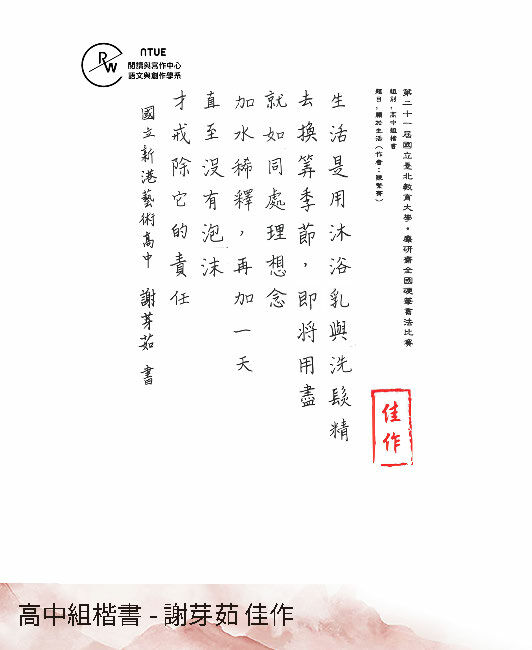 NTUE
RW
閱讀與寫作中心
語文與創作學系
第二十一屆國立臺北教育大學。麋研齋全國硬筆書法比賽
組別：高中組楷書
題目：關於生活（作者：陳繁齊）
生活是用沐浴乳與洗髮精
去換算季節，即將用盡
就如同處理想念
加水稀釋，再加一天
直至沒有泡沫
才戒除它的責任
國立新港藝術高中 謝芽茹 書
佳作
高中組楷書 - 謝芽茹 佳作